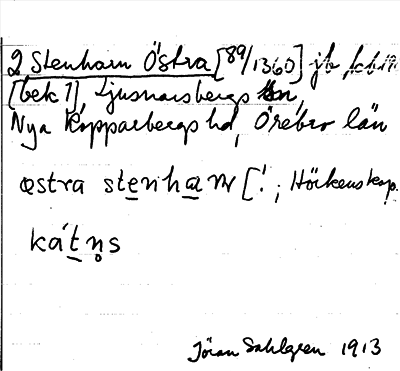 2 Stenharn Östra [89/1360] jb
[bek 1], Ljusnarsbergs sn,
Nya Kopparbergs hd, Örebro län
östra stenhar [!;
kátns
Jöran Sahlgren 1913